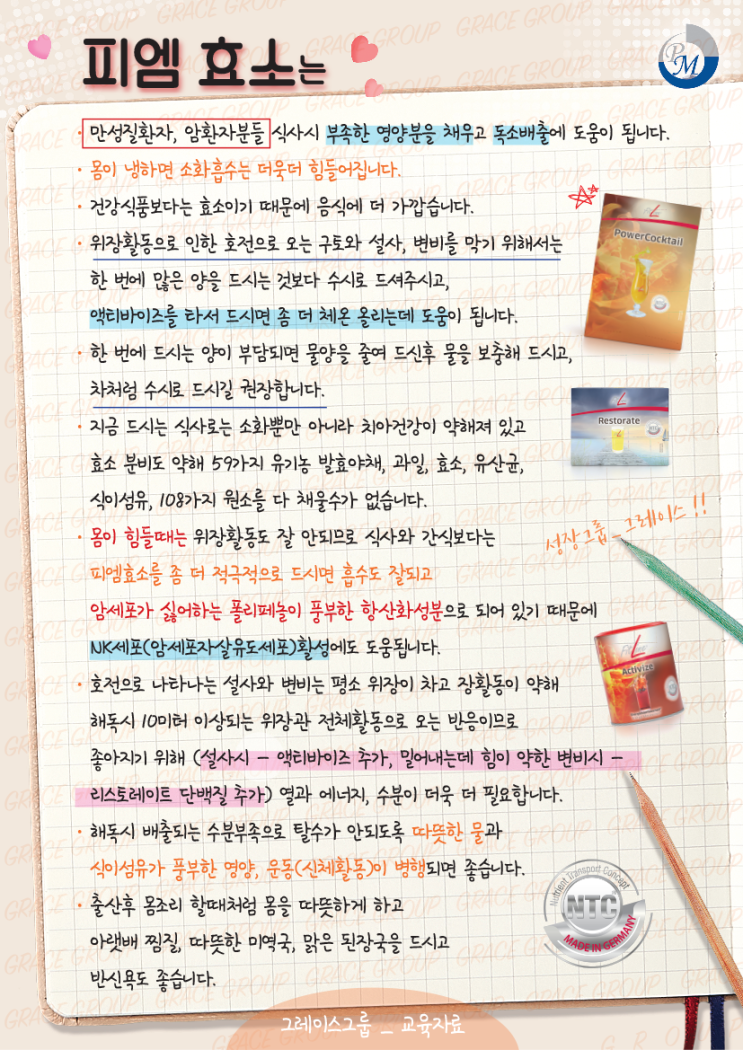 피엠 효소는
PM
· 만성질환자, 암환자분들 식사시 부족한 영양분을 채우고 독소배출에 도움이 됩니다.
· 몸이 냉하면 소화흡수는 더욱더 힘들어집니다.
· 건강식품보다는 효소이기 때문에 음식에 더 가깝습니다.
· 위장활동으로 인한 호전으로 오는 구토와 설사, 변비를 막기 위해서는
한 번에 많은 양을 드시는 것보다 수시로 드셔주시고,
액티바이즈를 타서 드시면 좀 더 체온 올리는데 도움이 됩니다.
· 한 번에 드시는 양이 부담되면 물양을 줄여 드신후 물을 보충해 드시고,
차처럼 수시로 드시길 권장합니다.
· 지금 드시는 식사로는 소화뿐만 아니라 치아건강이 약해져 있고
효소 분비도 약해 59가지 유기농 발효야채, 과일, 효소, 유산균,
식이섬유, 108가지 원소를 다 채울수가 없습니다.
· 몸이 힘들때는 위장활동도 잘 안되므로 식사와 간식보다는
피엠효소를 좀 더 적극적으로 드시면 흡수도 잘되고
암세포가 싫어하는 폴리페놀이 풍부한 항산화성분으로 되어 있기 때문에
NK세포(암세포자살유도세포)활성에도 도움됩니다.
· 호전으로 나타나는 설사와 변비는 평소 위장이 차고 장활동이 약해
해독시 10미터 이상되는 위장관 전체활동으로 오는 반응이므로
좋아지기 위해 (설사시 - 액티바이즈 추가, 밀어내는데 힘이 약한 변비시 -
리스토레이트 단백질 추가) 열과 에너지, 수분이 더욱 더 필요합니다.
· 해독시 배출되는 수분부족으로 탈수가 안되도록 따뜻한 물과
식이섬유가 풍부한 영양, 운동(신체활동)이 병행되면 좋습니다.
· 출산후 몸조리 할때처럼 몸을 따뜻하게 하고
아랫배 찜질, 따뜻한 미역국, 맑은 된장국을 드시고
반신욕도 좋습니다.
PowerCocktail
Restorate
성장그룹_그레이스 !!
Activize
Nutrient Transport Concept
NTC
MADE IN GERMANY
그레이스그룹 _ 교육자료
GRACE GROUP